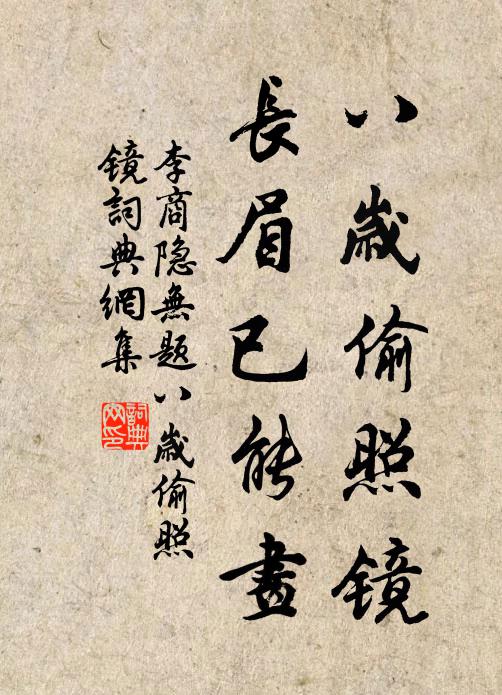 八歲偷照鏡
長眉已能畫
李商隐無题八歲偷照
镜詞典網集
詞典網印